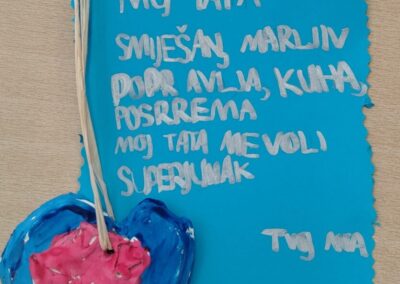 MOJ TATA
SMIJEŠAN, MARLJIV
POPRAVLJA, KUHA,
POSRREMA
MOJ TATA ME VOLI
SUPERJUNAK